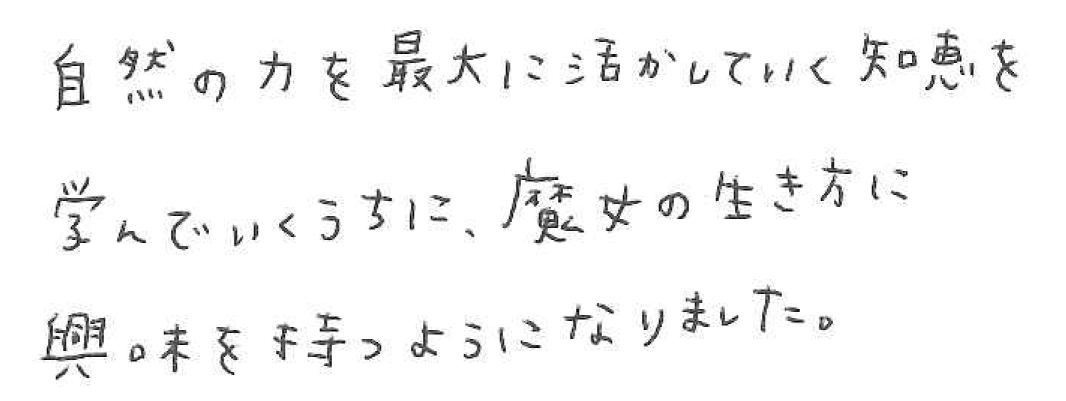 自然の力を最大に活かしていく知恵を
学んでいくうちに、魔女の生き方に
興味を持つようになりました。